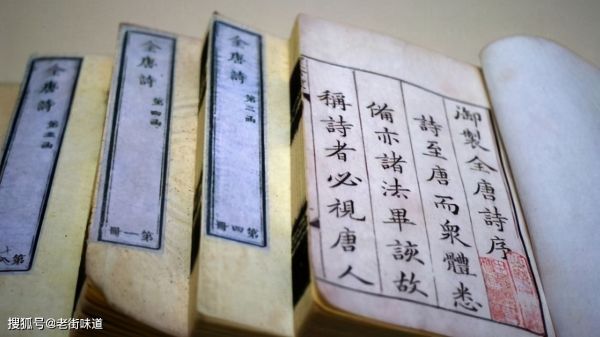 御製全唐詩序
詩至唐而衆體悉
備亦諸法畢該故
稱詩者必視唐人
全唐詩
第二函
第四冊
全唐詩
第四函
第一冊
全唐詩
第五函
搜狐号@老街味道